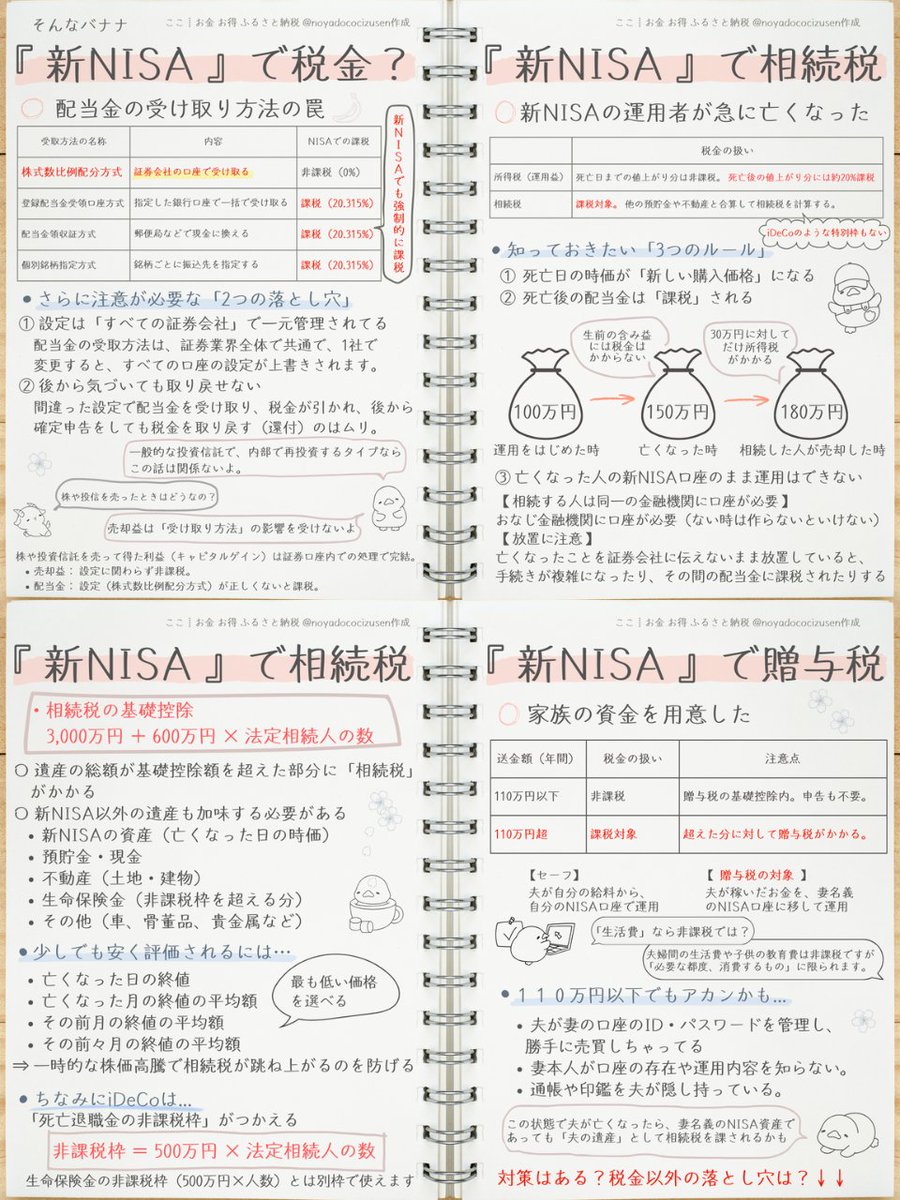 そんなバナナ
ここ┊お金 お得 ふるさと納税 @noyadococizusen作成
『新NISA』で税金？
○ 配当金の受け取り方法の罠
受取方法の名称 内容 NISAでの課税
株式数比例配分方式 証券会社の口座で受け取る 非課税（0%）
登録配当金受領口座方式 指定した銀行口座で一括で受け取る 課税（20.315%）
配当金領収証方式 郵便局などで現金に換える 課税（20.315%）
個別銘柄指定方式 銘柄ごとに振込先を指定する 課税（20.315%）
新NISAでも強制的に課税
●さらに注意が必要な「2つの落とし穴」
① 設定は「すべての証券会社」で一元管理されてる
配当金の受取方法は、証券業界全体で共通で、1社で
変更すると、すべての口座の設定が上書きされます。
② 後から気づいても取り戻せない
間違った設定で配当金を受け取り、税金が引かれ、後から
確定申告をしても税金を取り戻す（還付）のはムリ。
一般的な投資信託で、内部で再投資するタイプなら
この話は関係ないよ。
株や投信を売ったときはどうなの？
売却益は「受け取り方法」の影響を受けないよ
株や投資信託を売って得た利益（キャピタルゲイン）は証券口座内での処理で完結。
• 売却益： 設定に関わらず非課税。
• 配当金： 設定（株式数比例配分方式）が正しくないと課税。
ここ┊お金 お得 ふるさと納税 @noyadococizusen作成
『新NISA』で相続税
○新NISAの運用者が急に亡くなった
税金の扱い
所得税（運用益） 死亡日までの値上がり分は非課税。死亡後の値上がり分には約20%課税
相続税 課税対象。他の預貯金や不動産と合算して相続税を計算する。
iDeCoのような特別枠もない
●知っておきたい「3つのルール」
① 死亡日の時価が「新しい購入価格」になる
② 死亡後の配当金は「課税」される
生前の含み益
には税金は
かからない
30万円に対して
だけ所得税
がかかる
100万円 150万円 180万円
運用をはじめた時 亡くなった時 相続した人が売却した時
③ 亡くなった人の新NISA口座のまま運用はできない
【相続する人は同一の金融機関に口座が必要】
おなじ金融機関に口座が必要（ない時は作らないといけない）
【放置に注意】
亡くなったことを証券会社に伝えないまま放置していると、
手続きが複雑になったり、その間の配当金に課税されたりする
『新NISA』で相続税
・相続税の基礎控除
3,000万円 ＋ 600万円 × 法定相続人の数
○ 遺産の総額が基礎控除額を超えた部分に「相続税」
がかかる
○ 新NISA以外の遺産も加味する必要がある
• 新NISAの資産（亡くなった日の時価）
• 預貯金・現金
• 不動産（土地・建物）
• 生命保険金（非課税枠を超える分）
• その他（車、骨董品、貴金属など）
●少しでも安く評価されるには…
• 亡くなった日の終値
• 亡くなった月の終値の平均額
• その前月の終値の平均額
• その前々月の終値の平均額
最も低い価格
を選べる
⇒ 一時的な株価高騰で相続税が跳ね上がるのを防げる
●ちなみにiDeCoは…
「死亡退職金の非課税枠」がつかえる
非課税枠 ＝ 500万円 × 法定相続人の数
生命保険金の非課税枠（500万円×人数）とは別枠で使えます
ここ┊お金 お得 ふるさと納税 @noyadococizusen作成
『新NISA』で贈与税
○ 家族の資金を用意した
送金額（年間） 税金の扱い 注意点
110万円以下 非課税 贈与税の基礎控除内。申告も不要。
110万円超 課税対象 超えた分に対して贈与税がかかる。
【セーフ】
夫が自分の給料から、
自分のNISA口座で運用
【 贈与税の対象 】
夫が稼いだお金を、妻名義
のNISA口座に移して運用
「生活費」なら非課税では？
夫婦間の生活費や子供の教育費は非課税ですが
「必要な都度、消費するもの」に限られます。
●１１０万円以下でもアカンかも…
• 夫が妻の口座のID・パスワードを管理し、
勝手に売買しちゃってる
• 妻本人が口座の存在や運用内容を知らない。
• 通帳や印鑑を夫が隠し持っている。
この状態で夫が亡くなったら、妻名義のNISA資産で
あっても「夫の遺産」として相続税を課されるかも
対策はある？税金以外の落とし穴は？↓↓